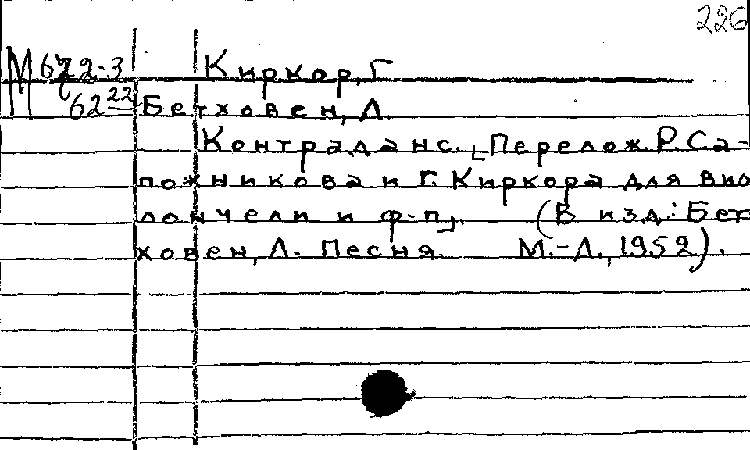 226
М 622-3 Киркор, Г
62 22 Бетховен, Л.
Контраданс. [Перелож. Р. Са-
пожникова и Г. Киркора для вио
лончели и ф-п]. (В изд: Бет
ховен, Л. Песня. М.-Л., 1952).